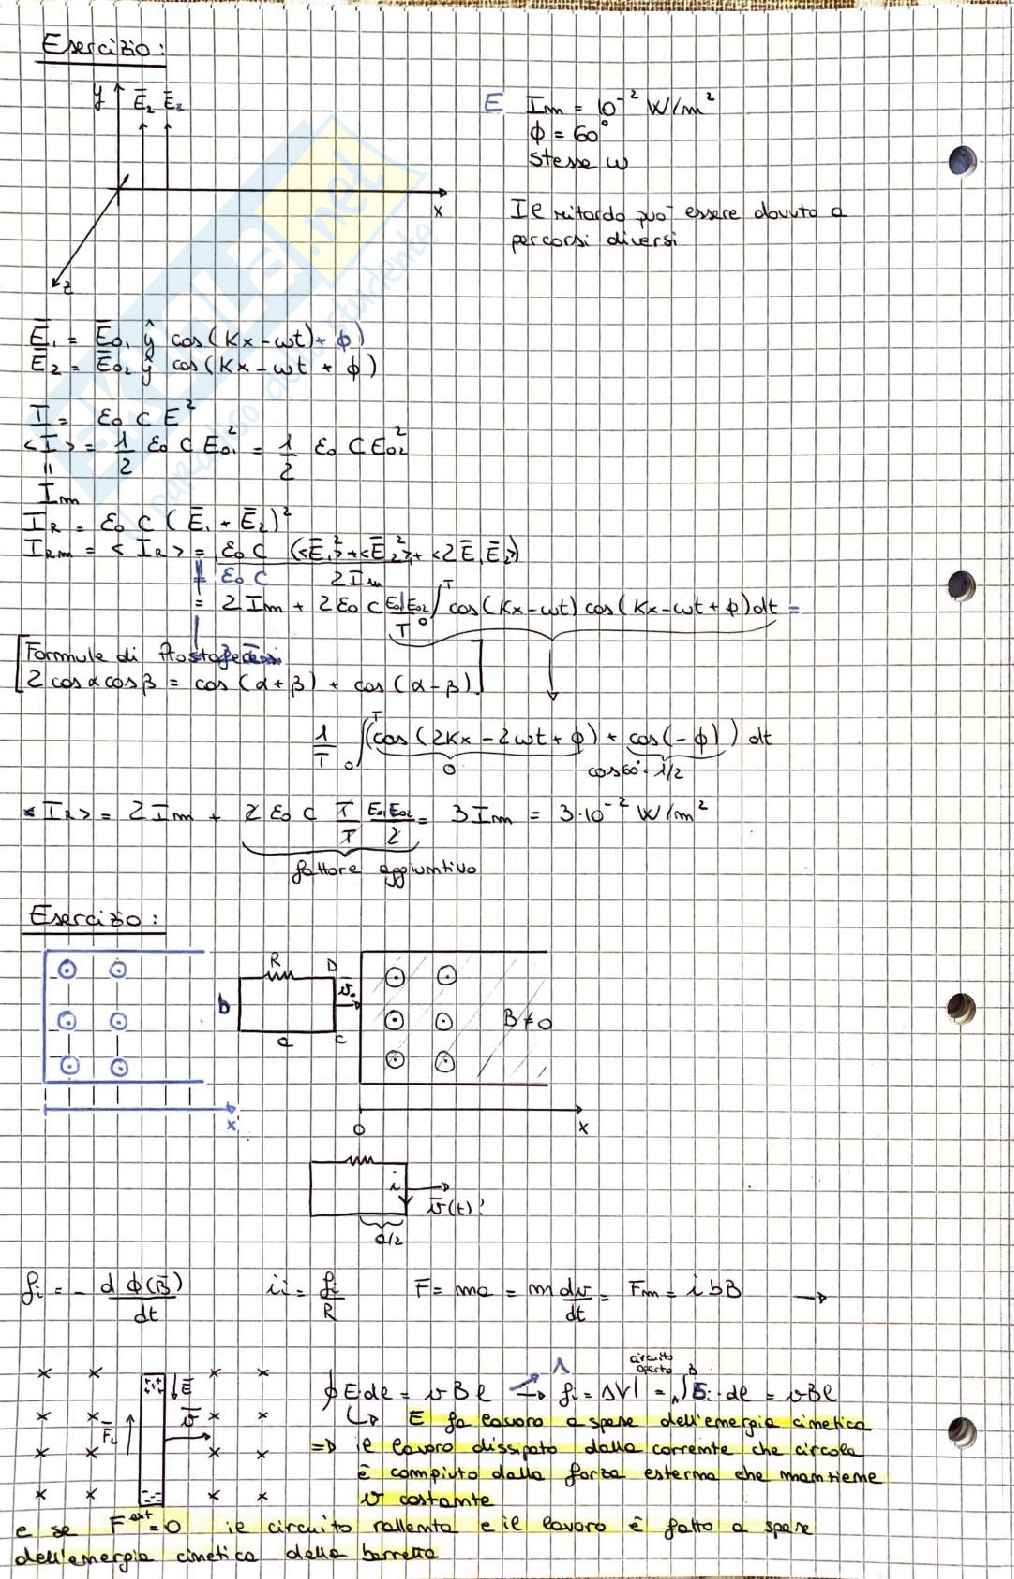 Esercizio:
y E̅₂ E̅₂
x
z
E Im = 10⁻² W/m²
ϕ = 60°
stesse ω
Il ritardo puo' essere dovuto a
percorsi diversi
E̅₁ = E̅₀₁ ŷ cos(Kx - ωt + ϕ)
E̅₂ = E̅₀₂ ŷ cos(Kx - ωt + ϕ)
I = ε₀ c E²
<I> = 1/2 ε₀ c E₀₁² = 1/2 ε₀ c E₀₂²
"
Im
I_R = ε₀ c (E̅₁ + E̅₂)²
I_Rm = <I_R> = ε₀ c (<E̅₁²> + <E̅₂²> + <2E̅₁E̅₂>)
ε₀ c 2Im
= 2Im + 2ε₀ c E₀₁E₀₂/T ∫₀ᵀ cos(Kx - ωt) cos(Kx - ωt + ϕ) dt =
[Formule di Prostaferesi
2 cos α cos β = cos(α+β) + cos(α-β)]
1/T ∫₀ᵀ (cos(2Kx - 2ωt + ϕ) + cos(-ϕ)) dt
0 cos60° = 1/2
<I_R> = 2Im + 2 ε₀ c T/T E₀₁E₀₂/2 = 3Im = 3·10⁻² W/m²
fattore aggiuntivo
Esercizio:
R D
b v̅₀ B≠0
a c
x
0 x
i v̅(t)?
a/2
fᵢ = - dϕ(B̅)/dt iᵢ = fᵢ/R F = ma = m dv/dt = Fm = i b B →
circuito
aperto
E̅ v̅ F̅L
∮ E·dl = vBl → fᵢ = ΔV = ∫ᴬᴮ Eᵢ·dl = vBl
↳ E fa lavoro a spese dell'energia cinetica
⇒ il lavoro dissipato dalla corrente che circola
è compiuto dalla forza esterna che mantiene
v costante
e se F^ext = 0 il circuito rallenta e il lavoro è fatto a spese
dell'energia cinetica della barretta